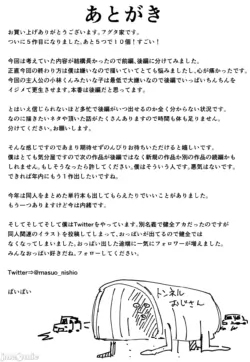 あとがき
お買い上げありがとうございます。フグタ家です。
ついに5作目になりました。あと5つで10個！すごい！
今回は考えていた内容が結構長かったので前編、後編に分けてみました。
正直今回の終わり方は僕は嫌いなので描いていてとても悩ましたし、心が痛かったです。
今回の主人公の小林くんみたいな子は最低で大嫌いなので後編でいっぱいちんちんを
イジメて更生させます。本番は後編だと思ってます。
とはいえ信じられないほど多忙で後編がいつ出せるのか全く分からない状況です。
なのに描きたいネタや頂いた話がたくさんありますので時間も体も足りません。
分けてください。お願いします。
そんな感じですのであまり期待せずのんびりお待ちいただけると嬉しいです。
僕はとても気分屋ですので次の作品が後編ではなく新規の作品か別の作品の続編かも
しれません。もしそうなったら許してください。僕はそういう人です。悪気はないです。
できれば年内にもう1作出したいですね。
今年は同人をまとめた単行本も出してもらえたりでいいことがありました。
もう一つありますけど今は内緒です。
そしてそしてそして僕はTwitterをやっています。別名義で健全アカだったのですが
同人関連のイラストを投稿してしまって、おっぱいが出てるので健全では
なくなってしまいました。おっぱい出した途端に一気にフォロワーが増えました。
みんなおっぱい好きだね。フォローしてください。
Twitter⇒@masuo_nishio
ばいばい
トンネル
おじさん